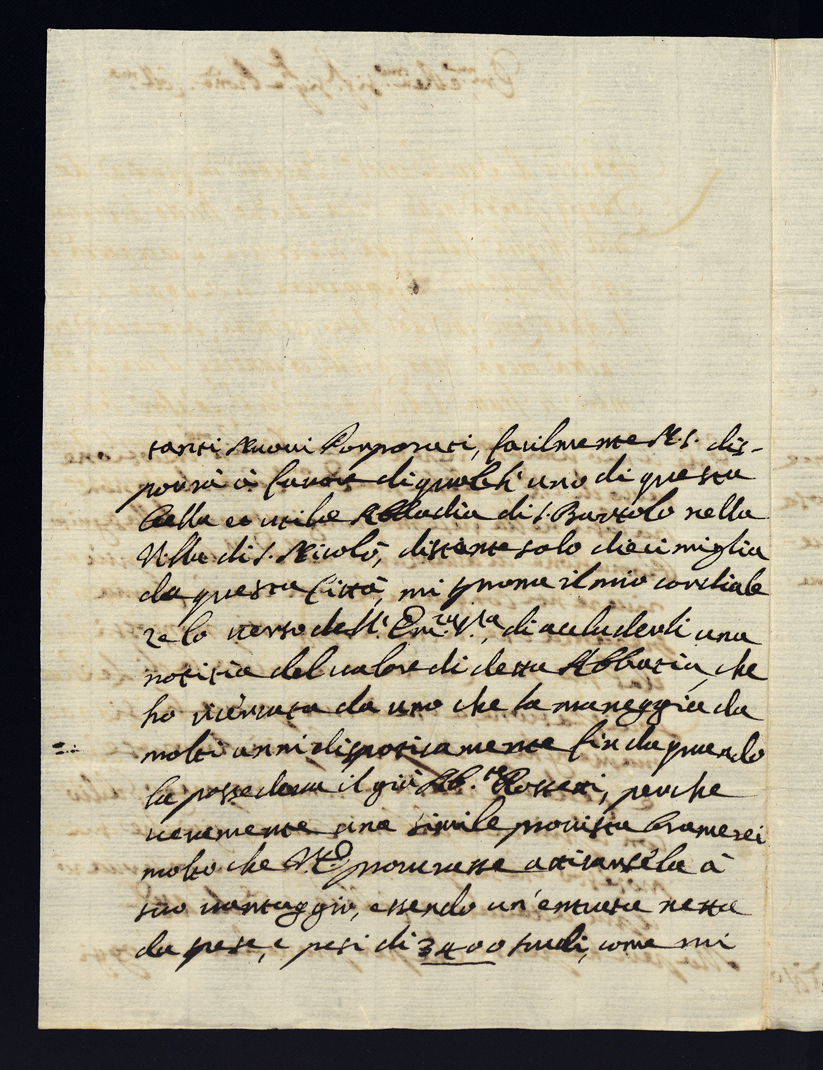 tanti nuovi Porporati, facilmente N.S. dis-
porrà à favore di qualch'uno di questa
bella et utile Abbadia di S. Bartolo nella
Villa di S. Nicolò, distante solo dieci miglia
da questa Città, mi sprona il mio cordiale
zelo verso dell' Em.za V.ra, di accluderli una
notitia del valore di detta Abbatia, che
ho ricavata da uno che la maneggia da
molti anni dispoticamente fin da quando
la possedeva il già Ab.te Rossetti, perche
veramente una simile provista bramerei
molto che V.E. procurasse attirarsela à
suo vantaggio, essendo un'entrata netta
da spese, e pesi di 3400 scudi, come mi